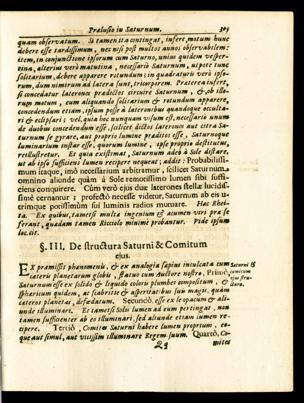 Prælusio in Saturnum. 305
quam observatum. Si tamen ita contingat, infert, motum hunc
debere esse tardissimum, nec nisi post multos annos observabilem:
item, in conjunctione ipsorum cum Saturno, unius quidem vesper-
tina, alterius verò matutina, necessariò Saturnum, utpote tunc
solitarium, debere apparere rotundum; in quadraturis verò ipso-
rum, dum nimirum ad latera sunt, tricorporem. Praterea infert,
si concedatur laterones prædictos circuire Saturnum, & ob illo-
rum motum, eum aliquando solitarium & rotundum apparere,
concedendum etiam, ipsum posse à lateronibus quandoque occulta-
ri & eclipsari; vel, quia hoc nunquam visum est, necessariò unum
de duobus concedendum esse, scilicet dictos laterones aut citra Sa-
turnum se gyrare, aut proprio lumine præditos esse, Saturnoque
luminarium instar esse, quorum lumine, ipse propriè destitutus,
reillustretur. Et quia existimat, Saturnum adeò à Sole distare,
ut ab ipso sufficiens lumen recipere nequeat; addit: Probabilissi-
mum itaque, imò necessarium arbitramur, scilicet Saturnum
omnino aliunde quàm à Sole remotissimo lumen sibi suffi-
ciens conquirere. Cùm verò ejus duæ laterones stellæ lucidis-
simè cernantur; profectò necesse videtur, Saturnum ab eis u-
trimque potissimùm sui luminis radios mutuare. Hæc Rhei-
ta. Ex quibus, tametsi multa ingenium & acumen viri præ se
ferant, quædam tamen Ricciolo minimè probantur. Vide ipsum
loc. cit.
§. III. De structura Saturni & Comitum
ejus.
EX præmissis phænomenis, & ex analogia sæpius inculcata cum
cæteris planetarum globis, statuo cum Auctore nostro, Primò,
Saturnum esse ex solido & liquido coloris plumbei compositum, &
sphæricum quidem, at scabritie & asperitatibus suis magis, quàm
cæteros planetas, disfædatum. Secundò, esse ex se opacum & ali-
unde illuminari. Et tametsi Solis lumen ad eum pertingat, non
tamen sufficienter ab eo illuminari, sed aliunde etiam lumen re-
cipere. Tertiò, Comites Saturni habere lumen proprium, eo-
que aut simul, aut vicissim illuminare Regem suum. Quartò, Co-
Qq mites
Saturni &
comitum
ejus stru-
ctura.